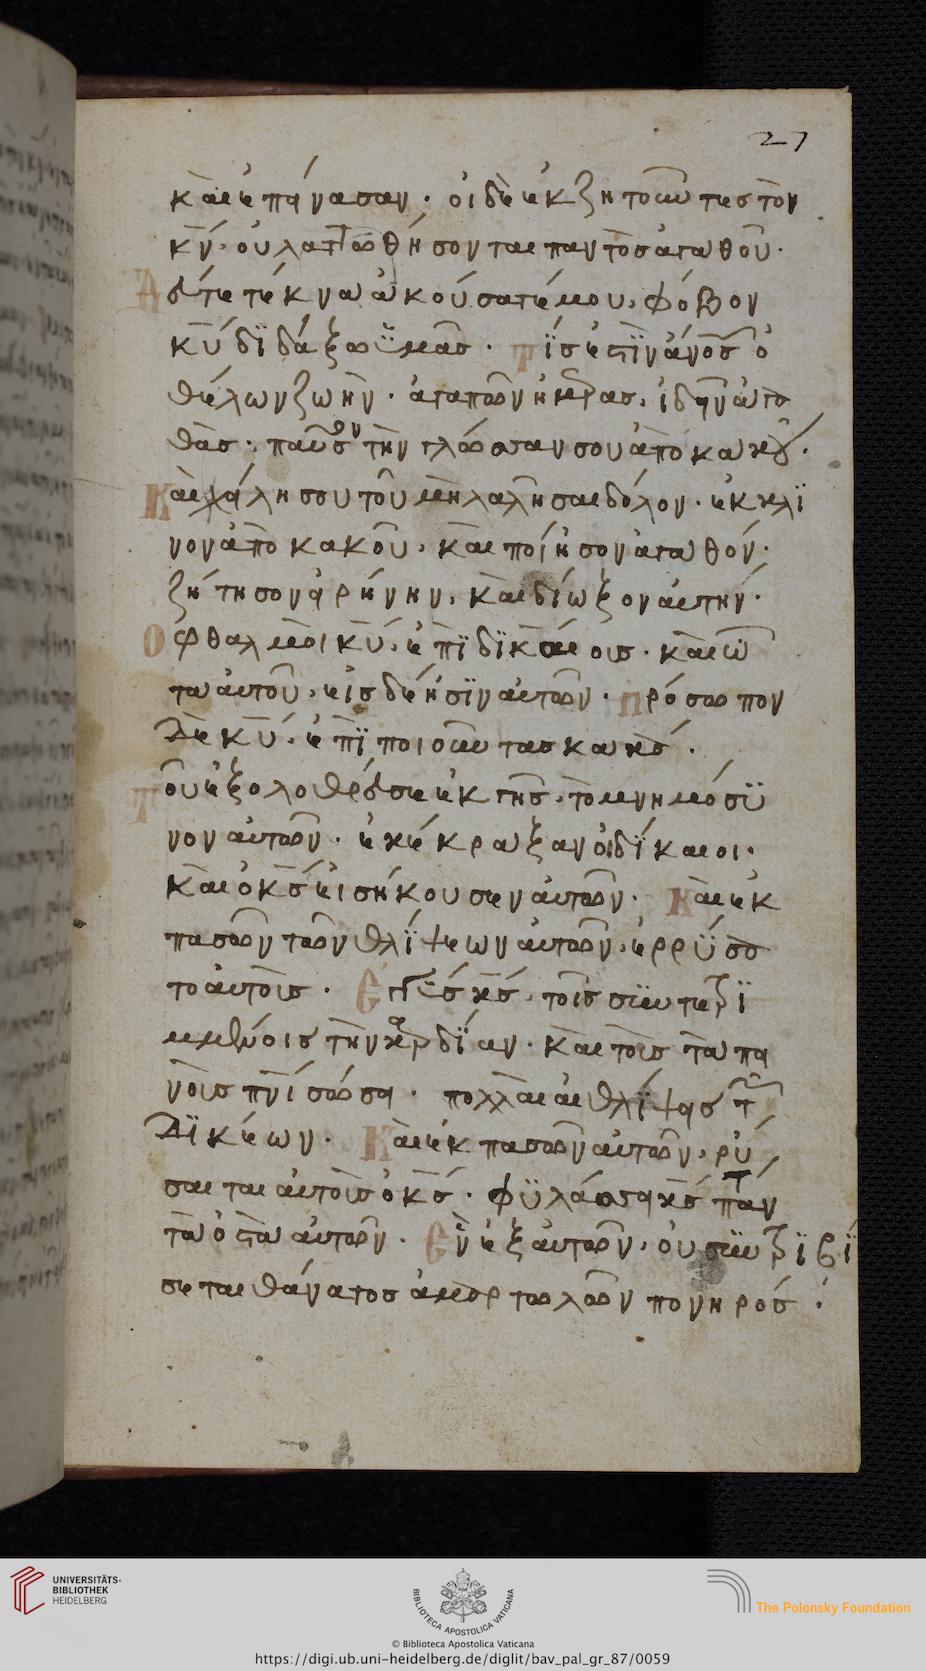 27
καὶ ἐπείνασαν · οἱ δὲ ἐκζητοῦντες τὸν
κν̄ · οὐκ ἐλαττωθήσονται παντὸς ἀγαθοῦ ·
Δεῦτε τέκνα ἀκούσατέ μου, φόβον
κῡ διδάξω ὑμᾶς · τίς ἐστιν ἄνος ὁ
θέλων ζωὴν · ἀγαπῶν ἡμέρας, ἰδεῖν ἀγα
θάς · παῦσον τὴν γλῶσσαν σου ἀπὸ κακοῦ ·
Καὶ χείλη σου τοῦ μὴ λαλῆσαι δόλον · ἔκκλι
νον ἀπὸ κακοῦ, καὶ ποίησον ἀγαθόν ·
ζήτησον εἰρήνην, καὶ δίωξον αὐτήν ·
Ὀφθαλμοὶ κῡ, ἐπὶ δικαίοις · καὶ ὦ
τα αὐτοῦ, εἰς δέησιν αὐτῶν · πρόσωπον
δὲ κῡ, ἐπὶ ποιοῦντας κακά ·
Τοῦ ἐξολοθρεῦσαι ἐκ γῆς, τὸ μνημόσυ
νον αὐτῶν · ἐκέκραξαν οἱ δίκαιοι ·
καὶ ὁ κς̄ εἰσήκουσεν αὐτῶν · Καὶ ἐκ
πασῶν τῶν θλίψεων αὐτῶν, ἐρρύσα
το αὐτοὺς · Ἐγγὺς κς̄, τοῖς συντετρι
μμένοις τὴν καρδίαν · καὶ τοὺς ταπει
νοὺς πνι σώσει · πολλαὶ αἱ θλίψεις τῶν
δικαίων · Καὶ ἐκ πασῶν αὐτῶν, ῥύ
σεται αὐτοὺς ὁ κς̄ · φυλάσσει κς̄ πάντα
τὰ ὀστᾶ αὐτῶν · Ἓν ἐξ αὐτῶν, οὐ συντριβή
σεται θάνατος ἁμαρτωλῶν πονηρός ·
UNIVERSITÄTS-
BIBLIOTHEK
HEIDELBERG
BIBLIOTECA APOSTOLICA VATICANA
The Polonsky Foundation
© Biblioteca Apostolica Vaticana
https://digi.ub.uni-heidelberg.de/diglit/bav_pal_gr_87/0059